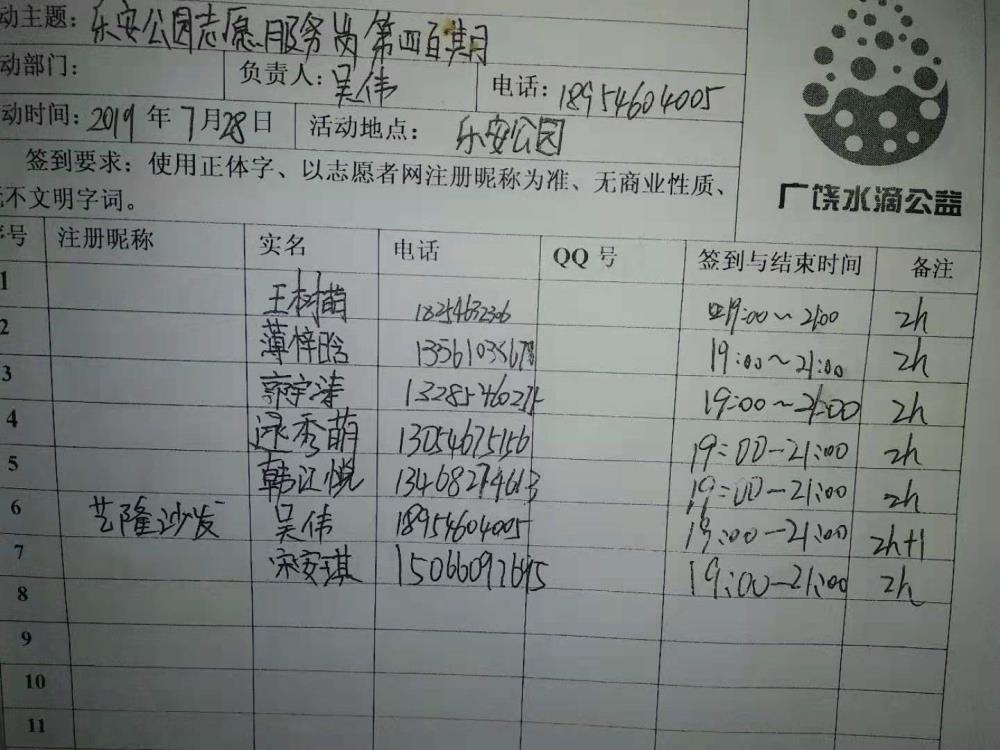 动主题: 乐安公园志愿服务岗第四百期
动部门: 负责人: 吴伟 电话: 18954604005
动时间: 2019 年 7 月 28 日 活动地点: 乐安公园
签到要求: 使用正体字、以志愿者网注册昵称为准、无商业性质、
无不文明字词。
广饶水滴公益
序号 注册昵称 实名 电话 QQ 号 签到与结束时间 备注
1 王树萌 19:00~21:00 2h
2 薄梓晗 19:00~21:00 2h
3 郭宇涛 19:00~21:00 2h
4 秀萌 13054675156 19:00-21:00 2h
5 韩江悦 13468274613 19:00-21:00 2h
6 艺隆沙发 吴伟 18954604005 19:00-21:00 2h+1
7 宋安琪 19:00-21:00 2h
8
9
10
11